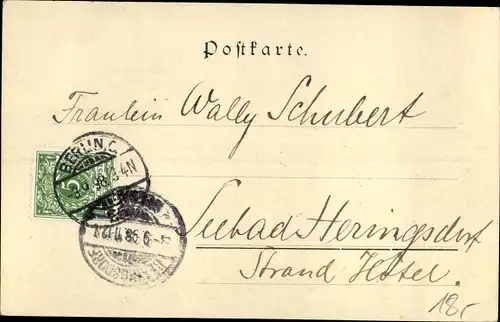 Postkarte.
Fräulein Wally Schubert
BERLIN.C.
98 3-4N
5
Seebad Heringsdorf
98
Strand Hotel.
18,-